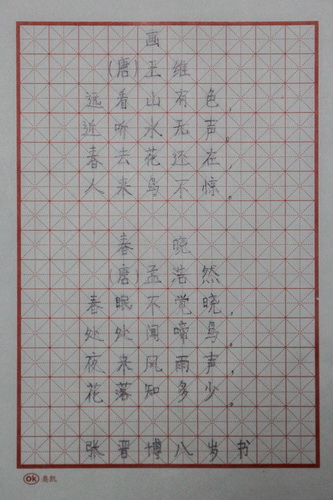 画
(唐)王维
远看山有色,
近听水无声。
春去花还在,
人来鸟不惊。
春晓
(唐)孟浩然
春眠不觉晓,
处处闻啼鸟。
夜来风雨声,
花落知多少。
张晋博八岁书
OK 奥凯